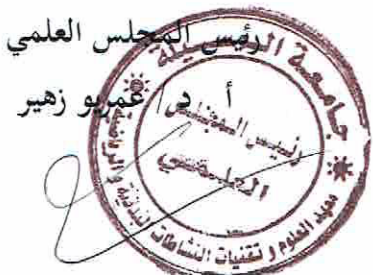 رئيس المجلس العلمي
أ د/ عمريو زهير
جامعة المسيلة
رئيس المجلس
العلمي
معهد العلوم و تقنيات النشاطات البدنية و الرياضية